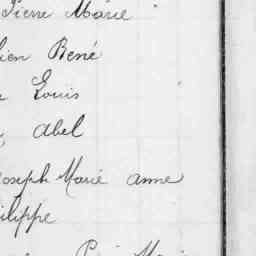 Pierre Marie
ien René
Louis
Abel
Joseph Marie anne
ilippe
Marie